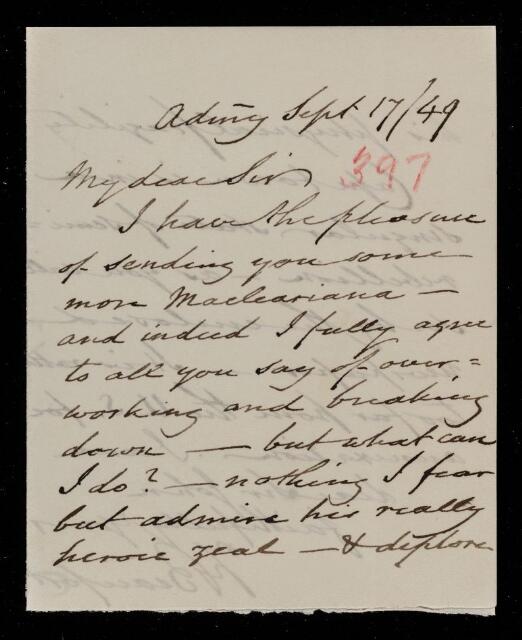 Admy Sept 17/49
397
My dear Sir
I have the pleasure
of sending you some
more Macleariana —
and indeed I fully agree
to all you say of over=
working and breaking
down — but what can
I do? — nothing I fear
but admire his really
heroic zeal — & deplore